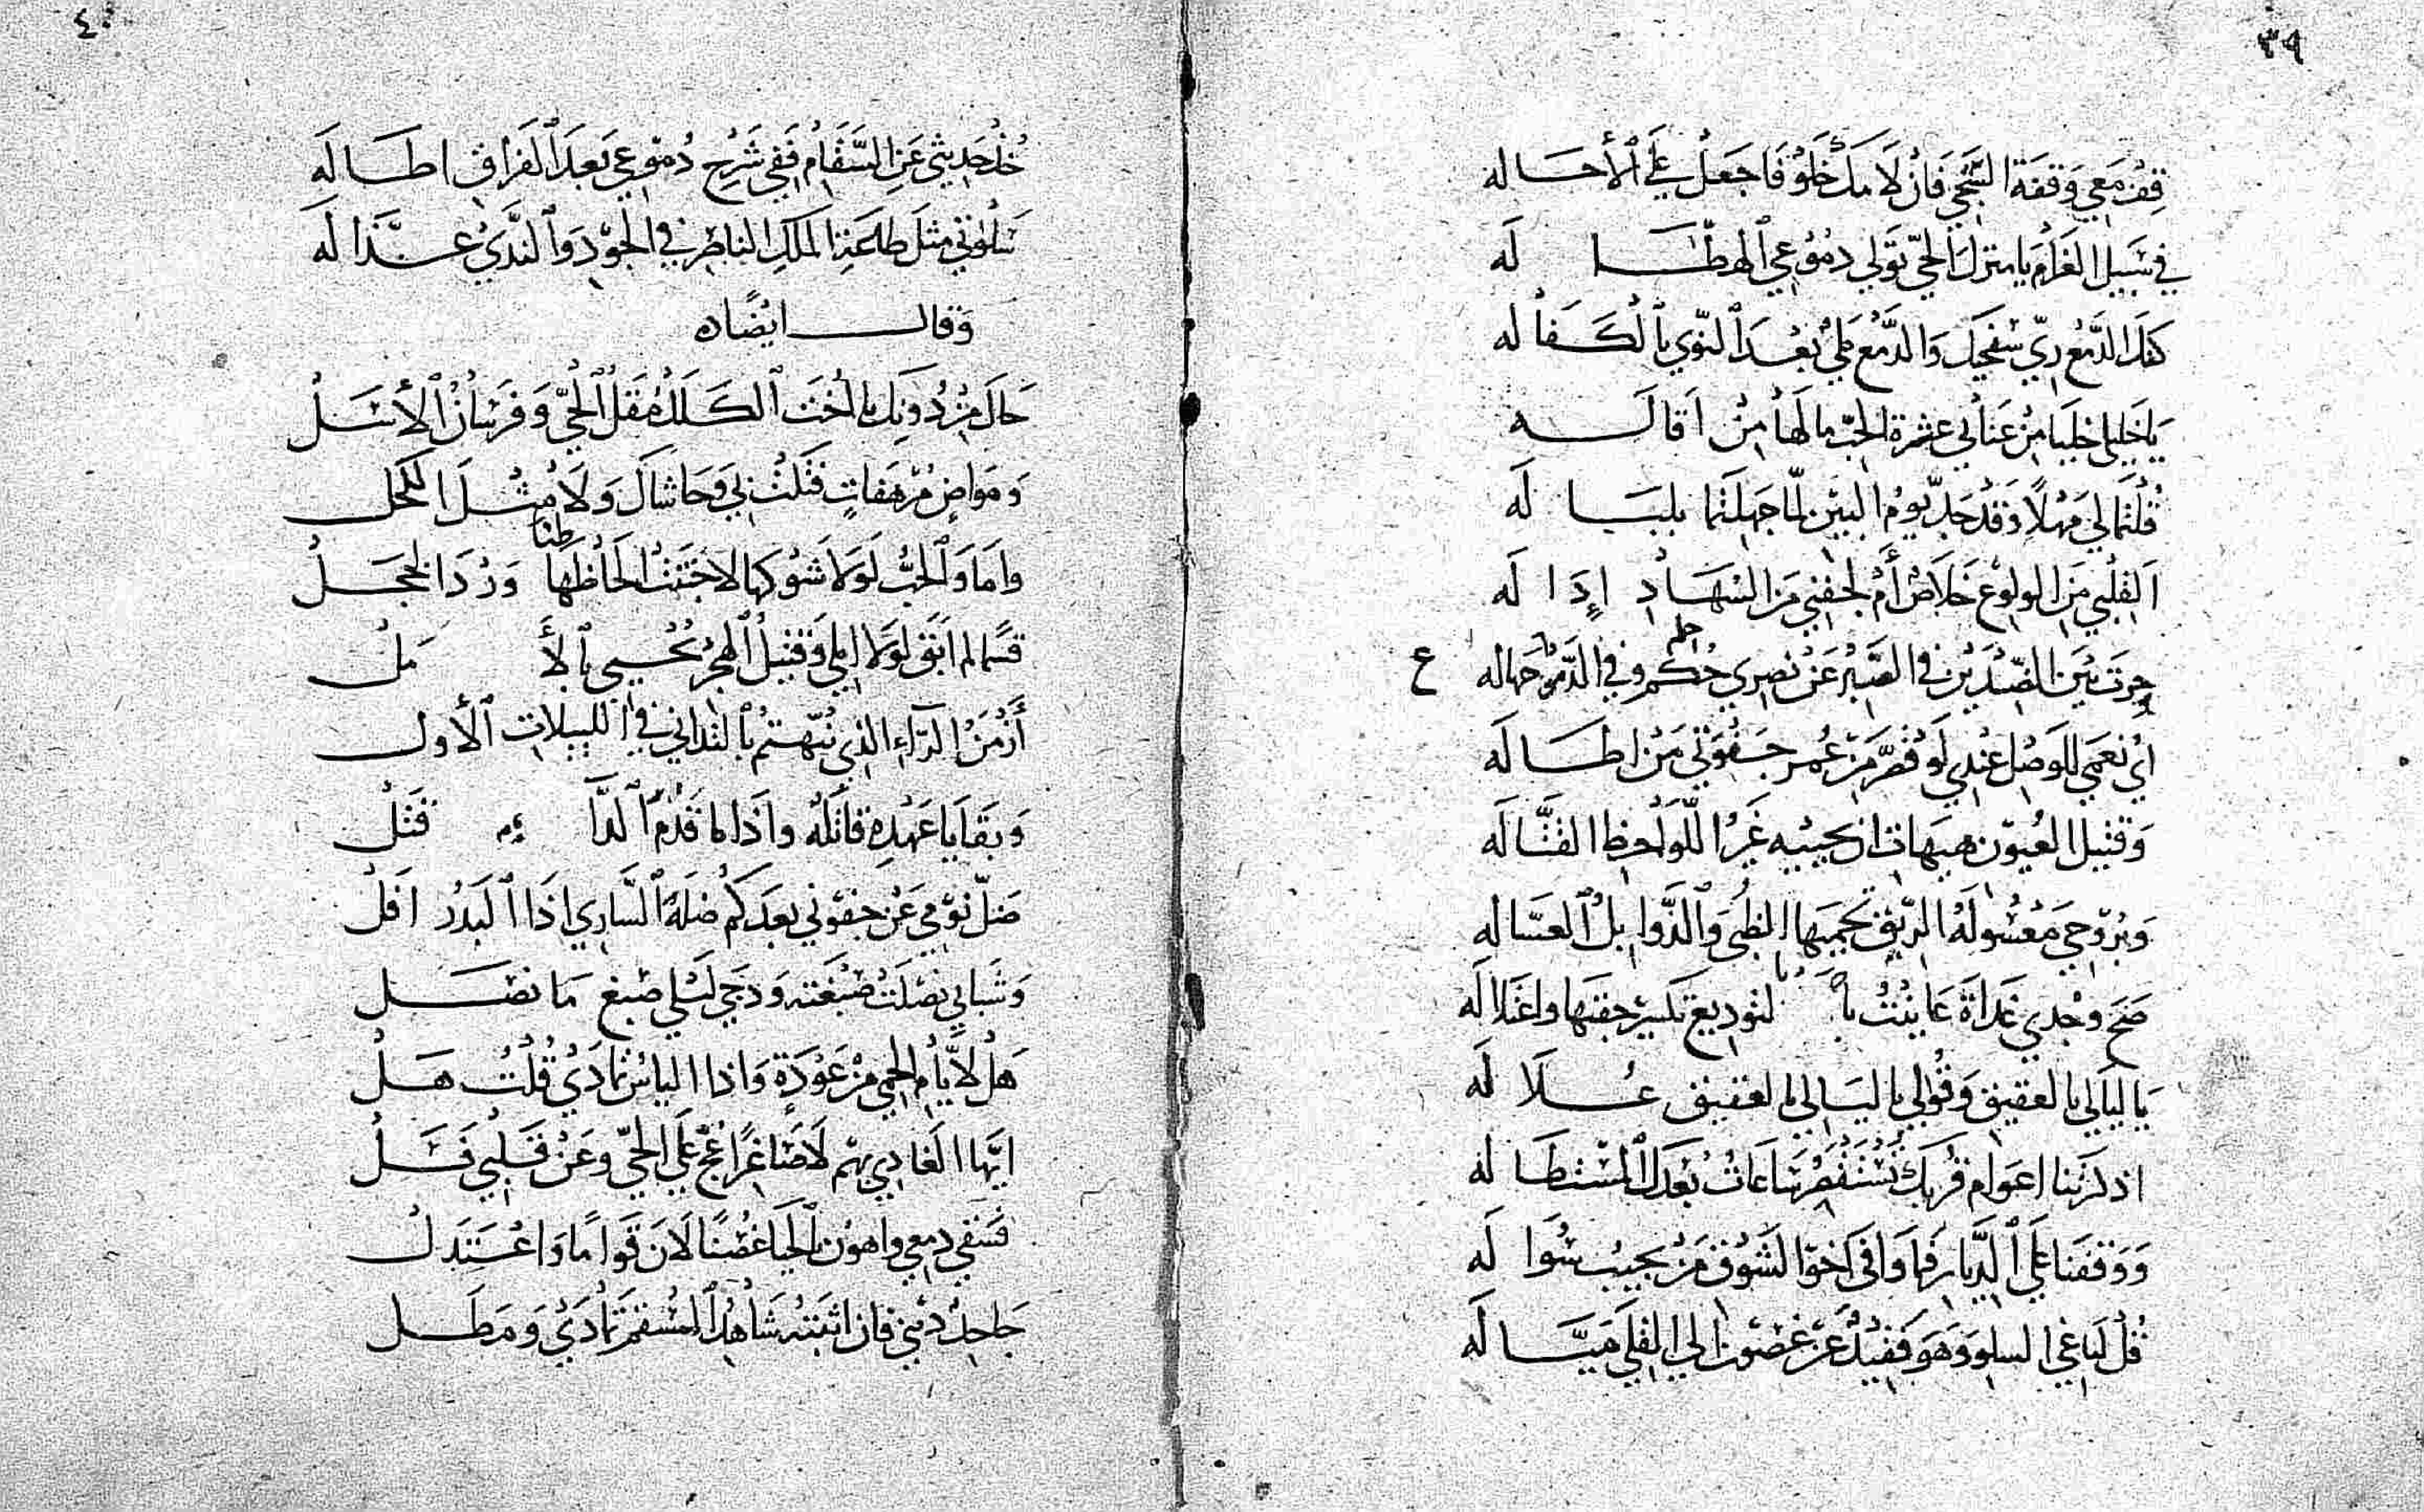 ٣٩
قِفْ مَعي وَقفَةَ الشَّجِي فَانْ لَا مَكَ خَلْوٌ فَاجعَلْ عَلَى الْأحَاله
في سَبيلِ الغَرَامِ يا منزلَ الحيّ تَوَلي دمُوُعي الهطّا لَه
كفلَ الدَّمْعُ رِيّ سَفحِكَ وَالدَّمْع مَليْ بَعْدَ النّوي بالْكفَاله
يَا خَليلي خلِّيا مِنْ عَنَا بي عثرة الحبّ ما لَها مِنْ اقاله
قُلتُما لي مَهْلًا وَقَدْ جدّ يومُ البيْنِ لمّا جَهلتما بلبَا لَه
ا لِقَلْبي مِنَ الولوُعِ خَلَاصٌ أَمْ لجَفني مَن السهَادِ إدَا لَه
جرَت بَيْنَ الضِّدَيْنِ في الصَّبرْ عَنْ نصرِي حُكم وفي الدَّمْ حماله ع
ايُ نعمي للوَصْل عنْدِي لَو قصَّرَ مِنْ عُمر جَفْوَتي مَنْ اطَالَه
وَقتيل العُيوُن هيهات ان يحييه غَيرُ اللّوَاحظ القتَّالَه
وَبرُوحي مَعْسُولَةُ الريّق تحميها الظبي وَالذَّوابلُ العسّاله
صَحَ وجْدي غَدَاةَ عَاينْتُ با لتوديع تكسير جفنها واعْتلالَه
يَا ليَالي بالعقيق وَقُولي يا ليَالي بالعقيق عُلَا لَه
اذكرتنا اعوَام قُربِك تُسْتَقْصَرُ سَاعَاتُ بَعْدَكَ المسْتطَا لَه
وَوَقفنا عَلَى الدِّيار فما وَافى اخوَا لشَوْق مَنْ يجيْبُ سُوَا لَه
قُلْ لباغي السلو وَهوَ فَقيْدٌ عَنْ غصون الي القلي ميَّا لَه
٤٠
خُذْ حَديثي عَن السّقَام ففي شَرْح دُموُعي بَعدَ الفرَاق اطَالَه
تَلْوني مثلَ طلعَةِ الملكِ الناظرِ في الجوُد وَالندَيُ عذَا لَه
وَقال ايْضًا ه
حَالَ مِنْ دُونِكِ يا اخْتَ الكَلَلْ مُقَلُ الحيّ وَفرسَانُ الْأسَلْ
وَموَاضٍ مُرْهَفاتٍ فتَلَتْ بي وَحَاشَاكَ وَلَا مثْلَ الكحل
وامَا وَالحُبُّ لَوَلا شَوْكها لاجتَنتْ الحَاظنا وَرْدَ الخجلْ
قسَمًا لم ابَقَ لوَلا املي وَقَتيلُ الهجْرُ يُحْيي بالْأَ مَلْ
أَزْمَنَ الدّاءِ الذي نُبّهتمْ بالتداني في الليلات الْأول
وَبقايا عَهْدِهِ قاتلُه واذَا ما قَدُمَ الدّا ء قتَلْ
ضَلّ نَوْمي عَنْ جفوُني بعدَكُم ضلَةَ السَّاري اذَا البَدْرُ افلْ
وَشَبابي نصْلَتْ صبْغَته وَدُجي لَيْلي صبغ مَا نصَل
هَلْ لأيَّامِ الحمي منْ عَوْدَةٍ وَاذا الياسُ تمادَيُ قُلْتُ هَلْ
ايّها الغادِي بهم لَا ضَاغرًا عُجْ عَلَى الحيّ وعَنْ قَلبي فسَلْ
فسَقي دمعي واهوُن بالحيا غصْنًا لَانَ قَوَامًا وَاعْتَدَلْ
جَاحدُ دَيْني فان اثبَته شَاهدُ المسْقم تمادَيْ وَمَطَل